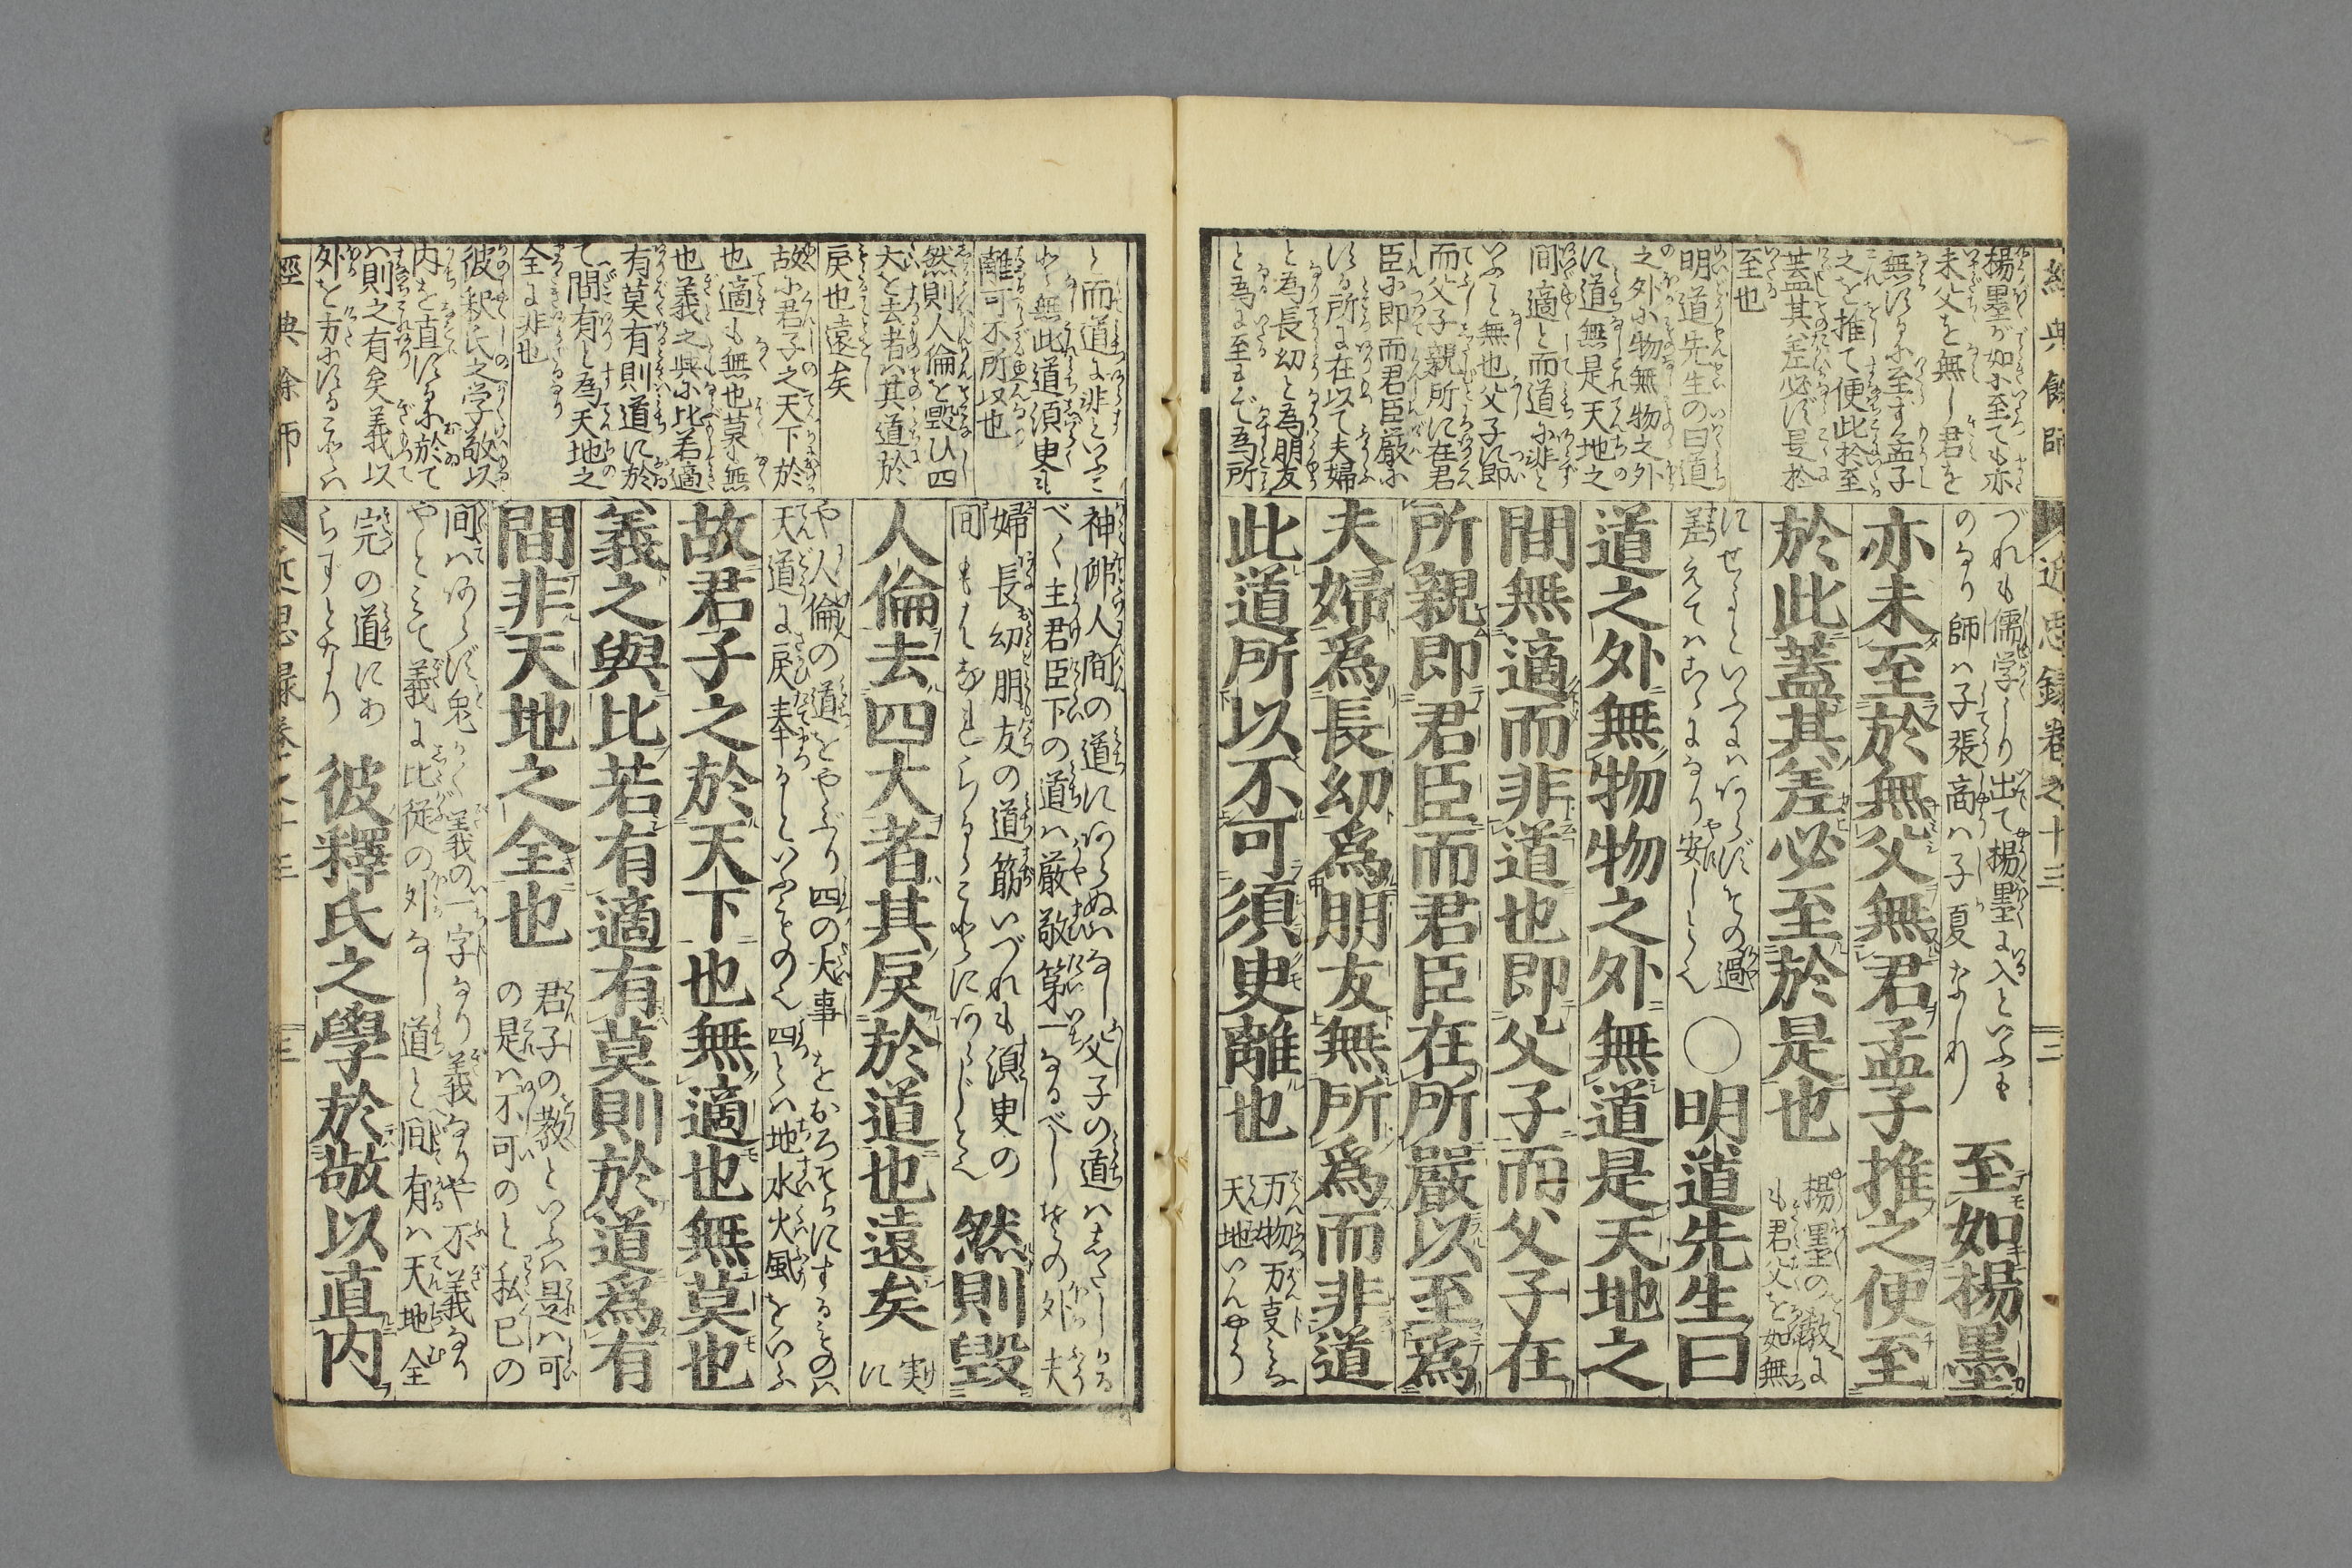 經典餘師
近思録卷之十三
三
楊墨が如に至ても亦
未父を無し君を
無するに至ず孟子
之を推て便此於至
蓋其差必ず是於
至也
明道先生の曰道
之外に物無物之外
に道無是天地之
間適と而道に非と
いふこと無也父子に即
而父子親所に在君
臣に即而君臣嚴に
する所に在以て夫婦
と為長幼と為朋友
と為に至まで為所
づれも儒学より出て楊墨に入といふも
のなり師は子張商は子夏なり
至如楊墨
亦未至於無父無君孟子推之便至
於此蓋其差必至於是也
楊墨の教に
も君父を如無
にせよといふにはあらず其の過
差えてはこゝになり安しとぞ
○明道先生曰
道之外無物物之外無道是天地之
間無適而非道也即父子而父子在
所親即君臣而君臣在所嚴以至爲
夫婦爲長幼爲朋友無所爲而非道
此道所以不可須臾離也
万物万事みな
天地いんやう
と而道に非といふこ
と無此道須臾も
離可不所以也
然則人倫を毀ひ四
大を去者は其道於
戻也遠矣
故に君子之天下於
也適も無也莫も無
也義之與に比若適
有莫有則道に於
て間有と為天地之
全に非也
彼釈氏之学敬以
内を直するに於て
は則之有矣義以
外を方にすることは
神郷人間の道にあらぬはなし父子の道はしたしかる
べく主君臣下の道は厳敬第一なるべし其の外夫
婦長幼朋友の道筋いづれも須臾の
間もはなれらるゝことにあらじとぞ
然則毀
人倫去四大者其戻於道也遠矣
実
に
や人倫の道をやぶり四の大事をおろそかにするものは
天道に戻奉るといふものぞ四とは地水火風をいふ
故君子之於天下也無適也無莫也
義之與比若有適有莫則於道爲有
間非天地之全也
君子の教といふは是は可
の是は不可のと私己の
間はあらず只義の一字なり義なりや不義なり
やとみて義に比従の外なし道と間有は天地全
完の道にあ
らずとなり
彼釋氏之學於敬以直内
經典餘師
近思録卷之十三
三